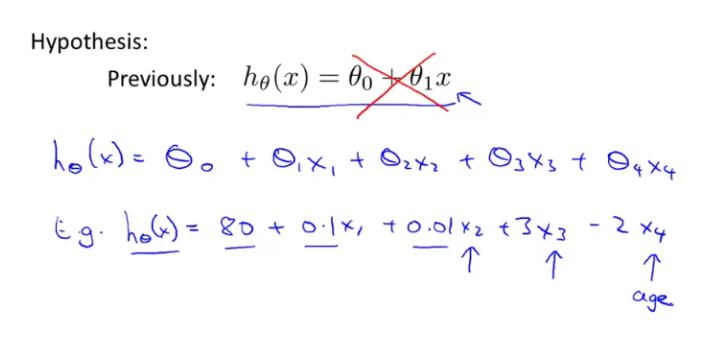 Hypothesis:
Previously: hθ(x) = θ₀ + θ₁x
hθ(x) = θ₀ + θ₁x₁ + θ₂x₂ + θ₃x₃ + θ₄x₄
E.g. hθ(x) = 80 + 0.1x₁ + 0.01x₂ + 3x₃ - 2x₄
age